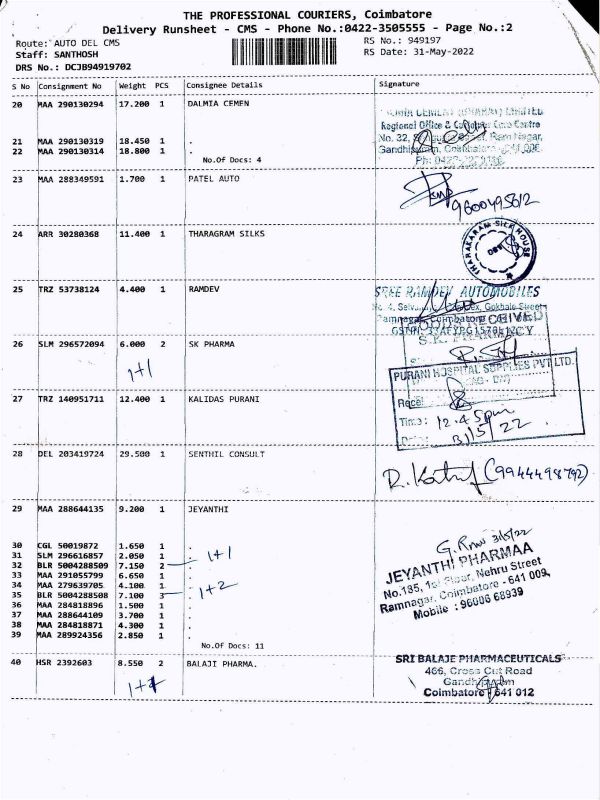 THE PROFESSIONAL COURIERS, Coimbatore
Delivery Runsheet - CMS - Phone No.:0422-3505555 - Page No.:2
Route: AUTO DEL CMS
RS No.: 949197
Staff: SANTHOSH
RS Date: 31-May-2022
DRS No.: DCJB94919702
S No Consignment No Weight PCS Consignee Details Signature
20 MAA 290130294 17.200 1 DALMIA CEMEN
21 MAA 290130319 18.450 1 .
22 MAA 290130314 18.800 1 .
No.Of Docs: 4
Regional Office &
No. 32,
23 MAA 288349591 1.700 1 PATEL AUTO
9600495612
24 ARR 30280368 11.400 1 THARAGRAM SILKS
THARAKARAM SILK HOUSE
25 TRZ 53738124 4.400 1 RAMDEV
SREE RAMDEV AUTOMOBILES
Gokhale Street
26 SLM 296572094 6.000 2 SK PHARMA
1+1
PURANI HOSPITAL SUPPLIES PVT LTD.
27 TRZ 140951711 12.400 1 KALIDAS PURANI
Time: 12.45pm
31/5/22
28 DEL 203419724 29.500 1 SENTHIL CONSULT
(9944498792)
29 MAA 288644135 9.200 1 JEYANTHI
30 CGL 50019872 1.650 1 .
31 SLM 296616857 2.050 1 .
32 BLR 5004288509 7.150 2 . 1+1
33 MAA 291055799 6.650 1 .
34 MAA 279639705 4.100 1 .
35 BLR 5004288508 7.100 3 . 1+2
36 MAA 284818896 1.500 1 .
37 MAA 288644109 3.700 1 .
38 MAA 284818871 4.300 1 .
39 MAA 289924356 2.850 1 .
No.Of Docs: 11
31/5/22
JEYANTHI PHARMAA
No.135, 1st Floor, Nehru Street
Ramnagar, Coimbatore - 641 009,
Mobile : 96006 68939
40 HSR 2392603 8.550 2 BALAJI PHARMA.
1+1
SRI BALAJE PHARMACEUTICALS
466, Cross Cut Road
Coimbatore - 641 012